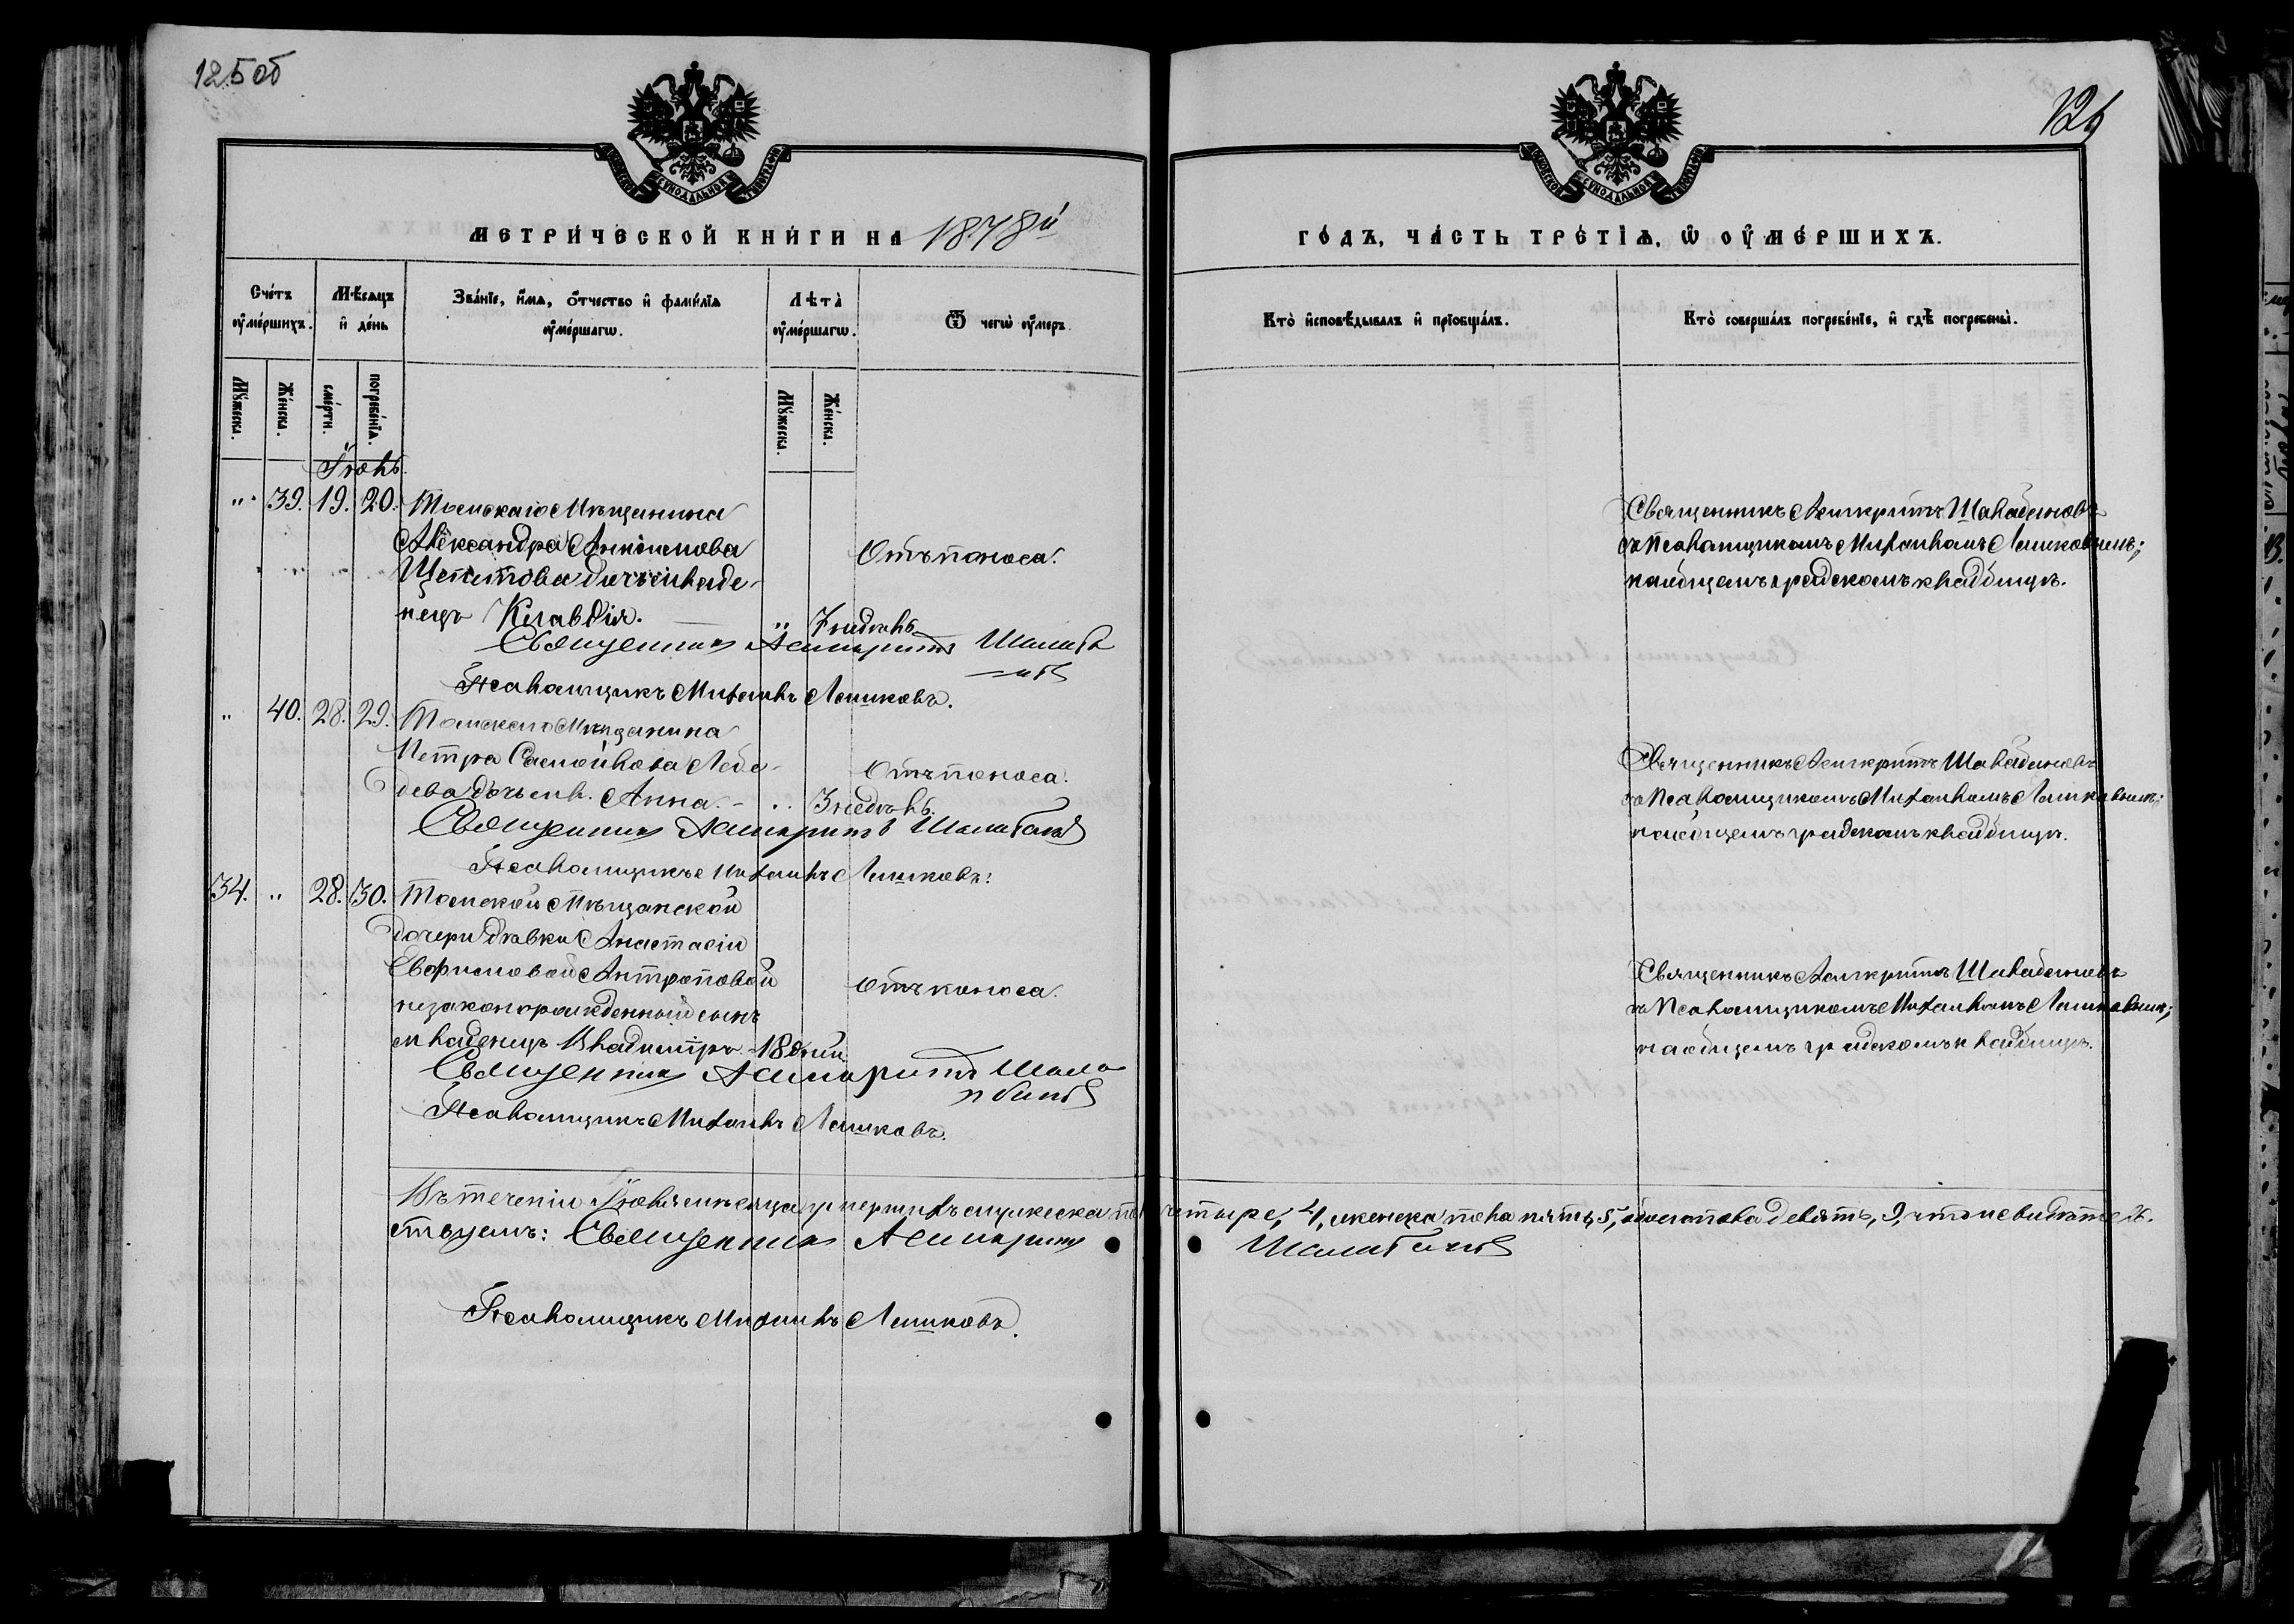 125 об
126
МОСКОВСКОЙ СѴНОДАЛЬНОЙ ТИПОГРАФІИ
МОСКОВСКОЙ СѴНОДАЛЬНОЙ ТИПОГРАФІИ
МЕТРИ́ЧЕСКОЙ КНИ́ГИ НА 1878й
ГО́ДЪ, ЧА́СТЬ ТРЕ́ТІѦ, Ѡ ОУ҆МЕ́РШИХЪ.
Сче́тъ оу҆ме́ршихъ.
Мѣ́сяцъ и҆ де́нь
Зва́ніе, и҆́мѧ, ѻ҆́тчество и҆ фами́лїѧ оу҆ме́ршагѡ.
Лѣта̀ оу҆ме́ршагѡ.
Ѿ чегѡ̀ оу҆́меръ.
Кто̀ и҆сповѣ́дывалъ и҆ прїобща́лъ.
Кто̀ соверша́лъ погребе́нїе, и҆ гдѣ̀ погребены̀.
Мꙋ́жеска.
Же́нска.
сме́рти.
погребе́нїѧ.
Мꙋ́жеска.
Же́нска.
Іюнь.
" 39. 19. 20. Томскаго Мѣщанина
Александра Анкиимова
Щепетова дочь младе-
нецъ Клавдія. " 7 недѣль
Отъ поноса.
Священникъ Асинкритъ Шалабановъ
съ Псаломщикомъ Михаиломъ Лешковымъ;
на общемъ градскомъ кладбищѣ.
Священникъ Асинкритъ Шалаба
новъ
Псаломщикъ Михаилъ Лешковъ.
" 40. 28. 29. Томскаго Мѣщанина
Петра Самойлова Лебе-
дева дочь мл. Анна. - " 3 недѣль.
Отъ поноса.
Священникъ Асинкритъ Шалабановъ
съ Псаломщикомъ Михаиломъ Лешковымъ;
на общемъ градскомъ кладбищѣ.
Священникъ Асинкритъ Шалабановъ
Псаломщикъ Михаилъ Лешковъ.
34. " 28. 30. Томской Мѣщанской
дочери дѣвки Анастасіи
Евфимовой Антроповой
незаконнорожденный сынъ
младенецъ Владиміръ - 18 дней
Отъ поноса.
Священникъ Асинкритъ Шалабановъ
съ Псаломщикомъ Михаиломъ Лешковымъ;
на общемъ градскомъ кладбищѣ.
Священникъ Асинкритъ Шала
бановъ
Псаломщикъ Михаилъ Лешковъ.
Въ теченіи Іюня мѣсяца умершихъ мужеска пола четыре, 4, женска пола пять, 5, обоего пола девять, 9, что и свидѣтель-
ствуемъ: Священникъ Асинкритъ Шалабановъ
Псаломщикъ Михаилъ Лешковъ.